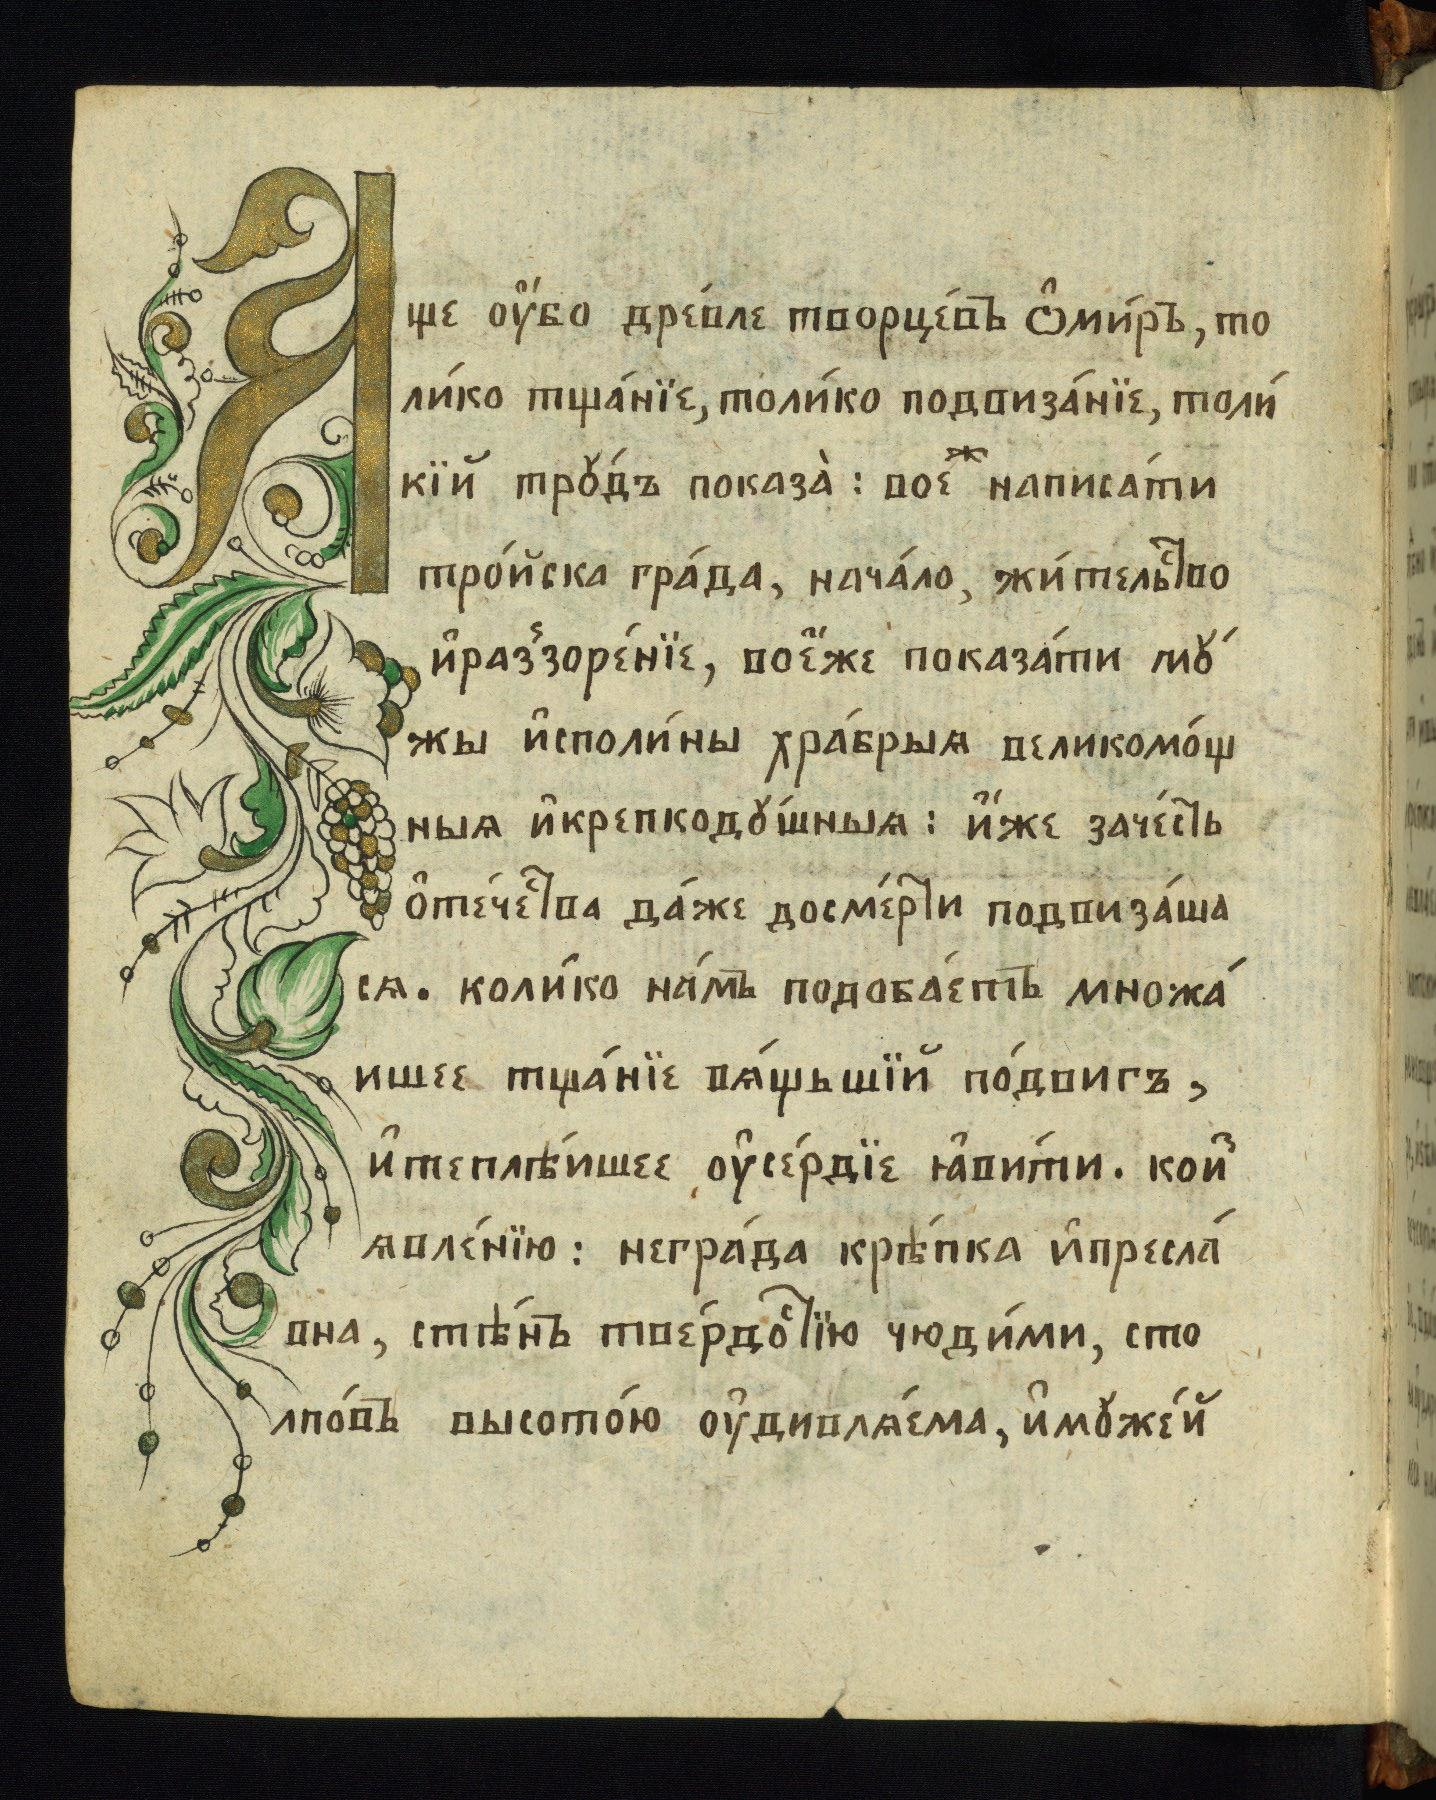 Аще оу҆́бо дре́вле творце́въ Ѻ҆ми́ръ, то
ли́ко тща́нїе, толи́ко подвиза́нїе, толи́
кїй трꙋ́дъ показа̀: вое́ж написа́ти
тро́йска гра́да, нача́ло, жи́тельⷭ҇тво
и҆раз̾зоре́нїе, вое҆́же показа́ти мꙋ́
жы и҆споли́ны хра́брыѧ великомо́щ
ныѧ и҆крепкодꙋ́шныѧ: и҆́же заче́сть
о҆те́чеⷭ҇тва да́же досме́рти подвиза́ша
сѧ. коли́ко на́мъ подоба́етъ множа́
ишее тща́нїе вѧ́щьшїй по́двигъ,
и҆теплѣ́ишее оу҆се́рдїе ꙗ҆ви́ти. кои҆̀
ѧвле́нїю: негра́да крѣ́пка и҆пресла́
вна, стѣ́нъ тве́рдоⷭ҇тїю чюди́ми, сто
лпо́въ высото́ю оу҆дивлѧ́ема, и҆мꙋже́й